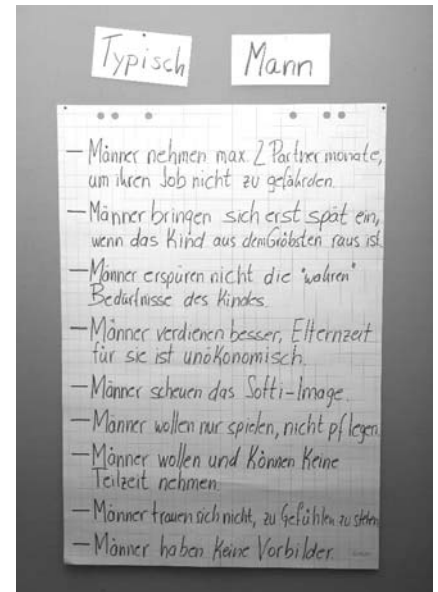 Typisch Mann
– Männer nehmen max. 2 Partnermonate,
um ihren Job nicht zu gefährden.
– Männer bringen sich erst spät ein,
wenn das Kind aus dem Gröbsten raus ist.
– Männer erspüren nicht die "wahren"
Bedürfnisse des Kindes.
– Männer verdienen besser, Elternzeit
für sie ist unökonomisch.
– Männer scheuen das Softi-Image.
– Männer wollen nur spielen, nicht pflegen.
– Männer wollen und können keine
Teilzeit nehmen.
– Männer trauen sich nicht, zu Gefühlen zu stehen.
– Männer haben keine Vorbilder.